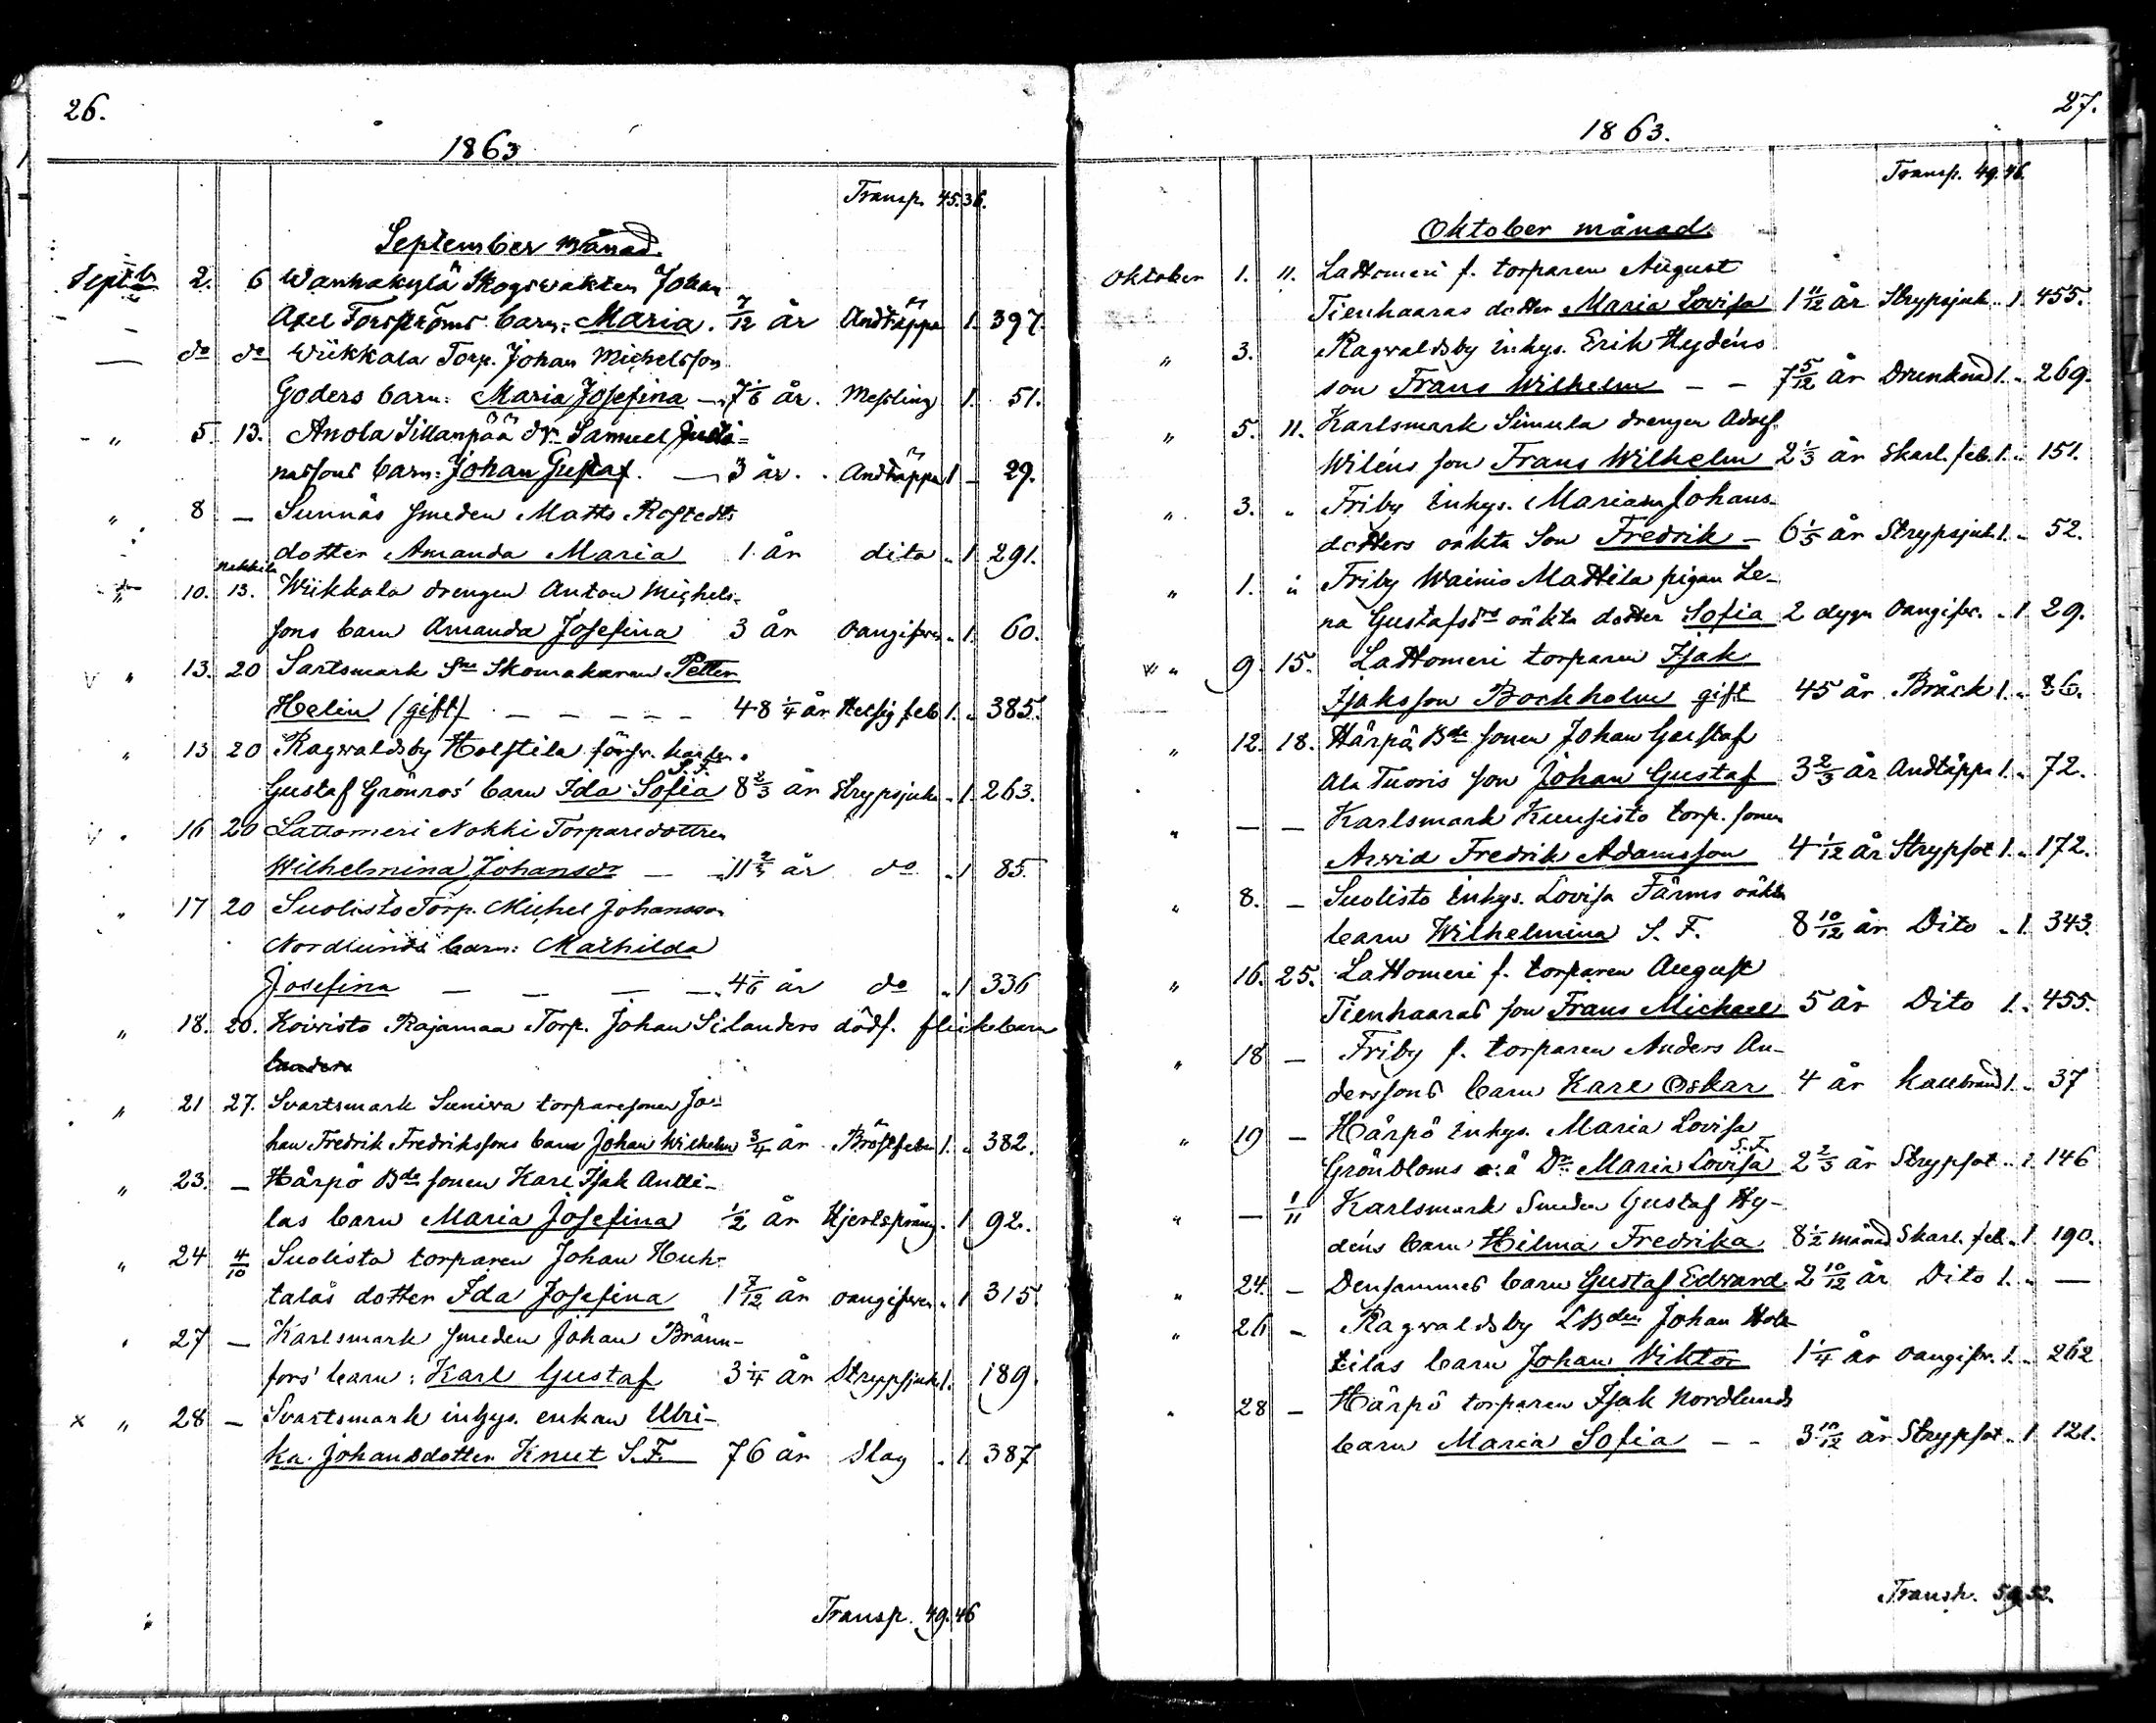 26.
1863
Transp. 45.36.
September månad.
Septb 2. 6 Wanhakylä Skogswakten Johan
Axel Forsströms barn: Maria. 7/12 år Andtäppa 1. 397.
— do do Wiikkala Torp. Johan Michelsson
Goders barn: Maria Josefina — 7 1/6 år. Messling 1. 51.
" 5. 13. Anola Sillanpää dr. Samuel
nassons barn: Johan Gustaf. — 3 år. Andtäppa 1 29.
" 8 — Sunnäs smeden Matts Rostedts
dotter Amanda Maria 1 år dito " 1 291.
Nakkila
" 10. 13. Wiikkala drengen Anton Michels-
sons barn Amanda Josefina 3 år oangifven " 1. 60.
v " 13. 20 Sartsmark Skomakaren Petter
Helin (gift) — — — — — 48 1/4 år Hetsig feb 1. " 385.
" 13 20 Ragwaldsby Holstila
S. F.
Gustaf Grönros' barn Ida Sofia 8 2/3 år Strypsjuka " 1. 263.
v " 16 20 Lattomeri Nokki Torparedottren
Wilhelmina Johansdr — 11 år do " 1 85.
" 17 20 Suolisto Torp. Michel Johansson
Nordlunds barn: Mathilda
Josefina — — — — 4 1/6 år do " 1 336
" 18. 20. Koivisto Rajamaa Torp. Johan Silanders dödf. flickebarn
" 21 27. Svartsmark Suniva torparesonen Jo-
han Fredrik Fredrikssons barn Johan Wilhelm 3/4 år Bröstfeber 1. " 382.
" 23. — Härpö Bde sonen Karl Isak Antti-
las barn Maria Josefina 1/2 år Hjertspräng " 1 92.
" 24 4/10 Suolisto torparen Johan Huh-
talas dotter Ida Josefina 1 7/12 år oangifven " 1 315
" 27 — Karlsmark smeden Johan Bränn-
fors' barn: Karl Gustaf 3 1/4 år Strypsjuk 1. 189.
x " 28 — Svartsmark inhys. enkan Ulri-
ka Johansdotter Knut S. F. 76 år Slag " 1. 387
Transp. 49.46
27.
1863.
Transp. 49.46.
Oktober månad
Oktober 1. 11. Lattomeri f. torparen August
Tienhaaras dotter Maria Lovisa 1 11/12 år Strypsjuk " 1 455.
" 3. Ragwaldsby inhys. Erik Hydéns
son Frans Wilhelm — — 7 5/12 år Drunknad 1. " 269.
" 5. 11. Karlsmark Simula drengen Adolf
Wiléns son Frans Wilhelm 2 1/3 år Skarl. feb. 1. " 151.
" 3. " Friby inhys. Maria Johans-
dotters oäkta Son Fredrik — 6 1/5 år Strypsjuk 1. " 52.
" 1. " Friby Wainio Mattila pigan Le-
na Gustafsdrs oäkta dotter Sofia 2 dygn oangifv. " 1 29.
v " 9. 15. Lattomeri torparen Isak
Isaksson Bockholm gift 45 år Bråck 1. " 86.
" 12. 18. Härpä Bde sonen Johan Gustaf
Ala Tuoris son Johan Gustaf 3 2/3 år Andtäppa 1. " 72.
" — — Karlsmark Kuusisto torp. sonen
Arvid Fredrik Adamsson 4 1/12 år Strypsot 1. " 172.
" 8. — Suolisto inhys. Lovisa Färms oäkta
barn Wilhelmina S. F. 8 10/12 år Dito " 1. 343.
" 16. 25. Lattomeri f. torparen August
Tienhaaras son Frans Michael 5 år Dito 1. " 455.
" 18 — Friby f. torparen Anders An-
derssons barn Karl Oskar 4 år kallbrand 1. " 37
" 19 — Härpö inhys. Maria Lovisa
S. F.
Grönbloms o. ä Dr. Maria Lovisa 2 2/3 år Strypsot " 1. 146
" — 1/11 Karlsmark Smeden Gustaf Hy-
déns barn Hilma Fredrika 8 1/2 månad Skarl. feb " 1 190.
" 24. — Densammes barn Gustaf Edward 2 10/12 år Dito 1. " —
" 26 — Ragwaldsby LBden Johan Hols-
tilas barn Johan Viktor 1 1/4 år oangifv. 1. " 262
" 28 — Härpö torparen Isak Nordlunds
barn Maria Sofia — — 3 10/12 år Strypsot " 1 121.
Transp. 59.52.